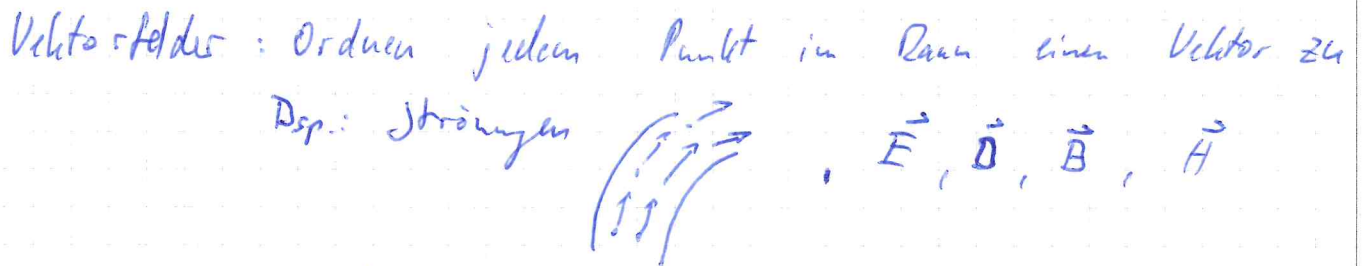 Vektorfelder : Ordnen jedem Punkt im Raum einen Vektor zu
Bsp.: Strömungen , E⃗, D⃗, B⃗, H⃗